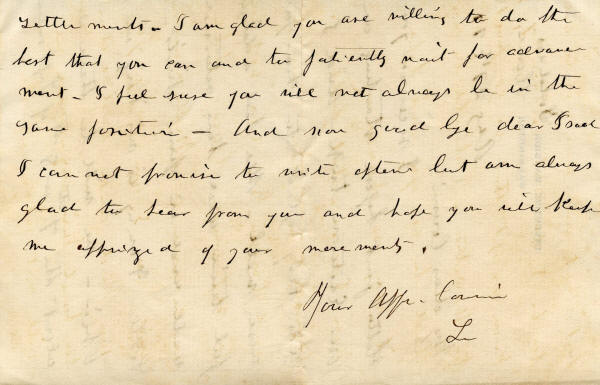 settlements - I am glad you are willing to do the
best that you can and to patiently wait for advance
ment - I feel sure you will not always be in the
same position - And now good bye dear Isaac
I can not promise to write often but am always
glad to hear from you and hope you will keep
me apprized of your movements.
Your Affe. Cousin